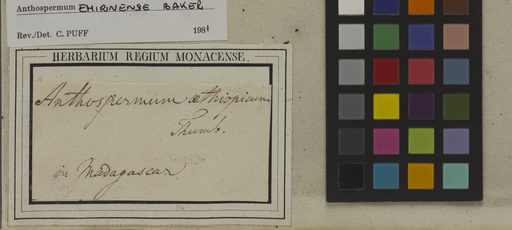 Anthospermum EMIRNENSE BAKER
Rev./Det. C. PUFF 1981
HERBARIUM REGIUM MONACENSE.
Anthospermum æthiopicum
Thunb.
in Madagascar